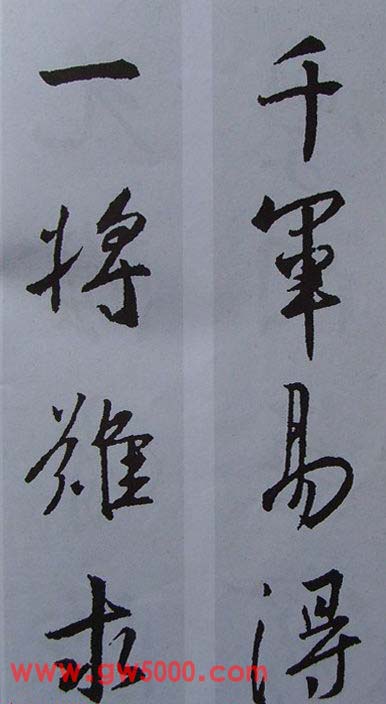 千軍易得
一將難求
www.gw5000.com